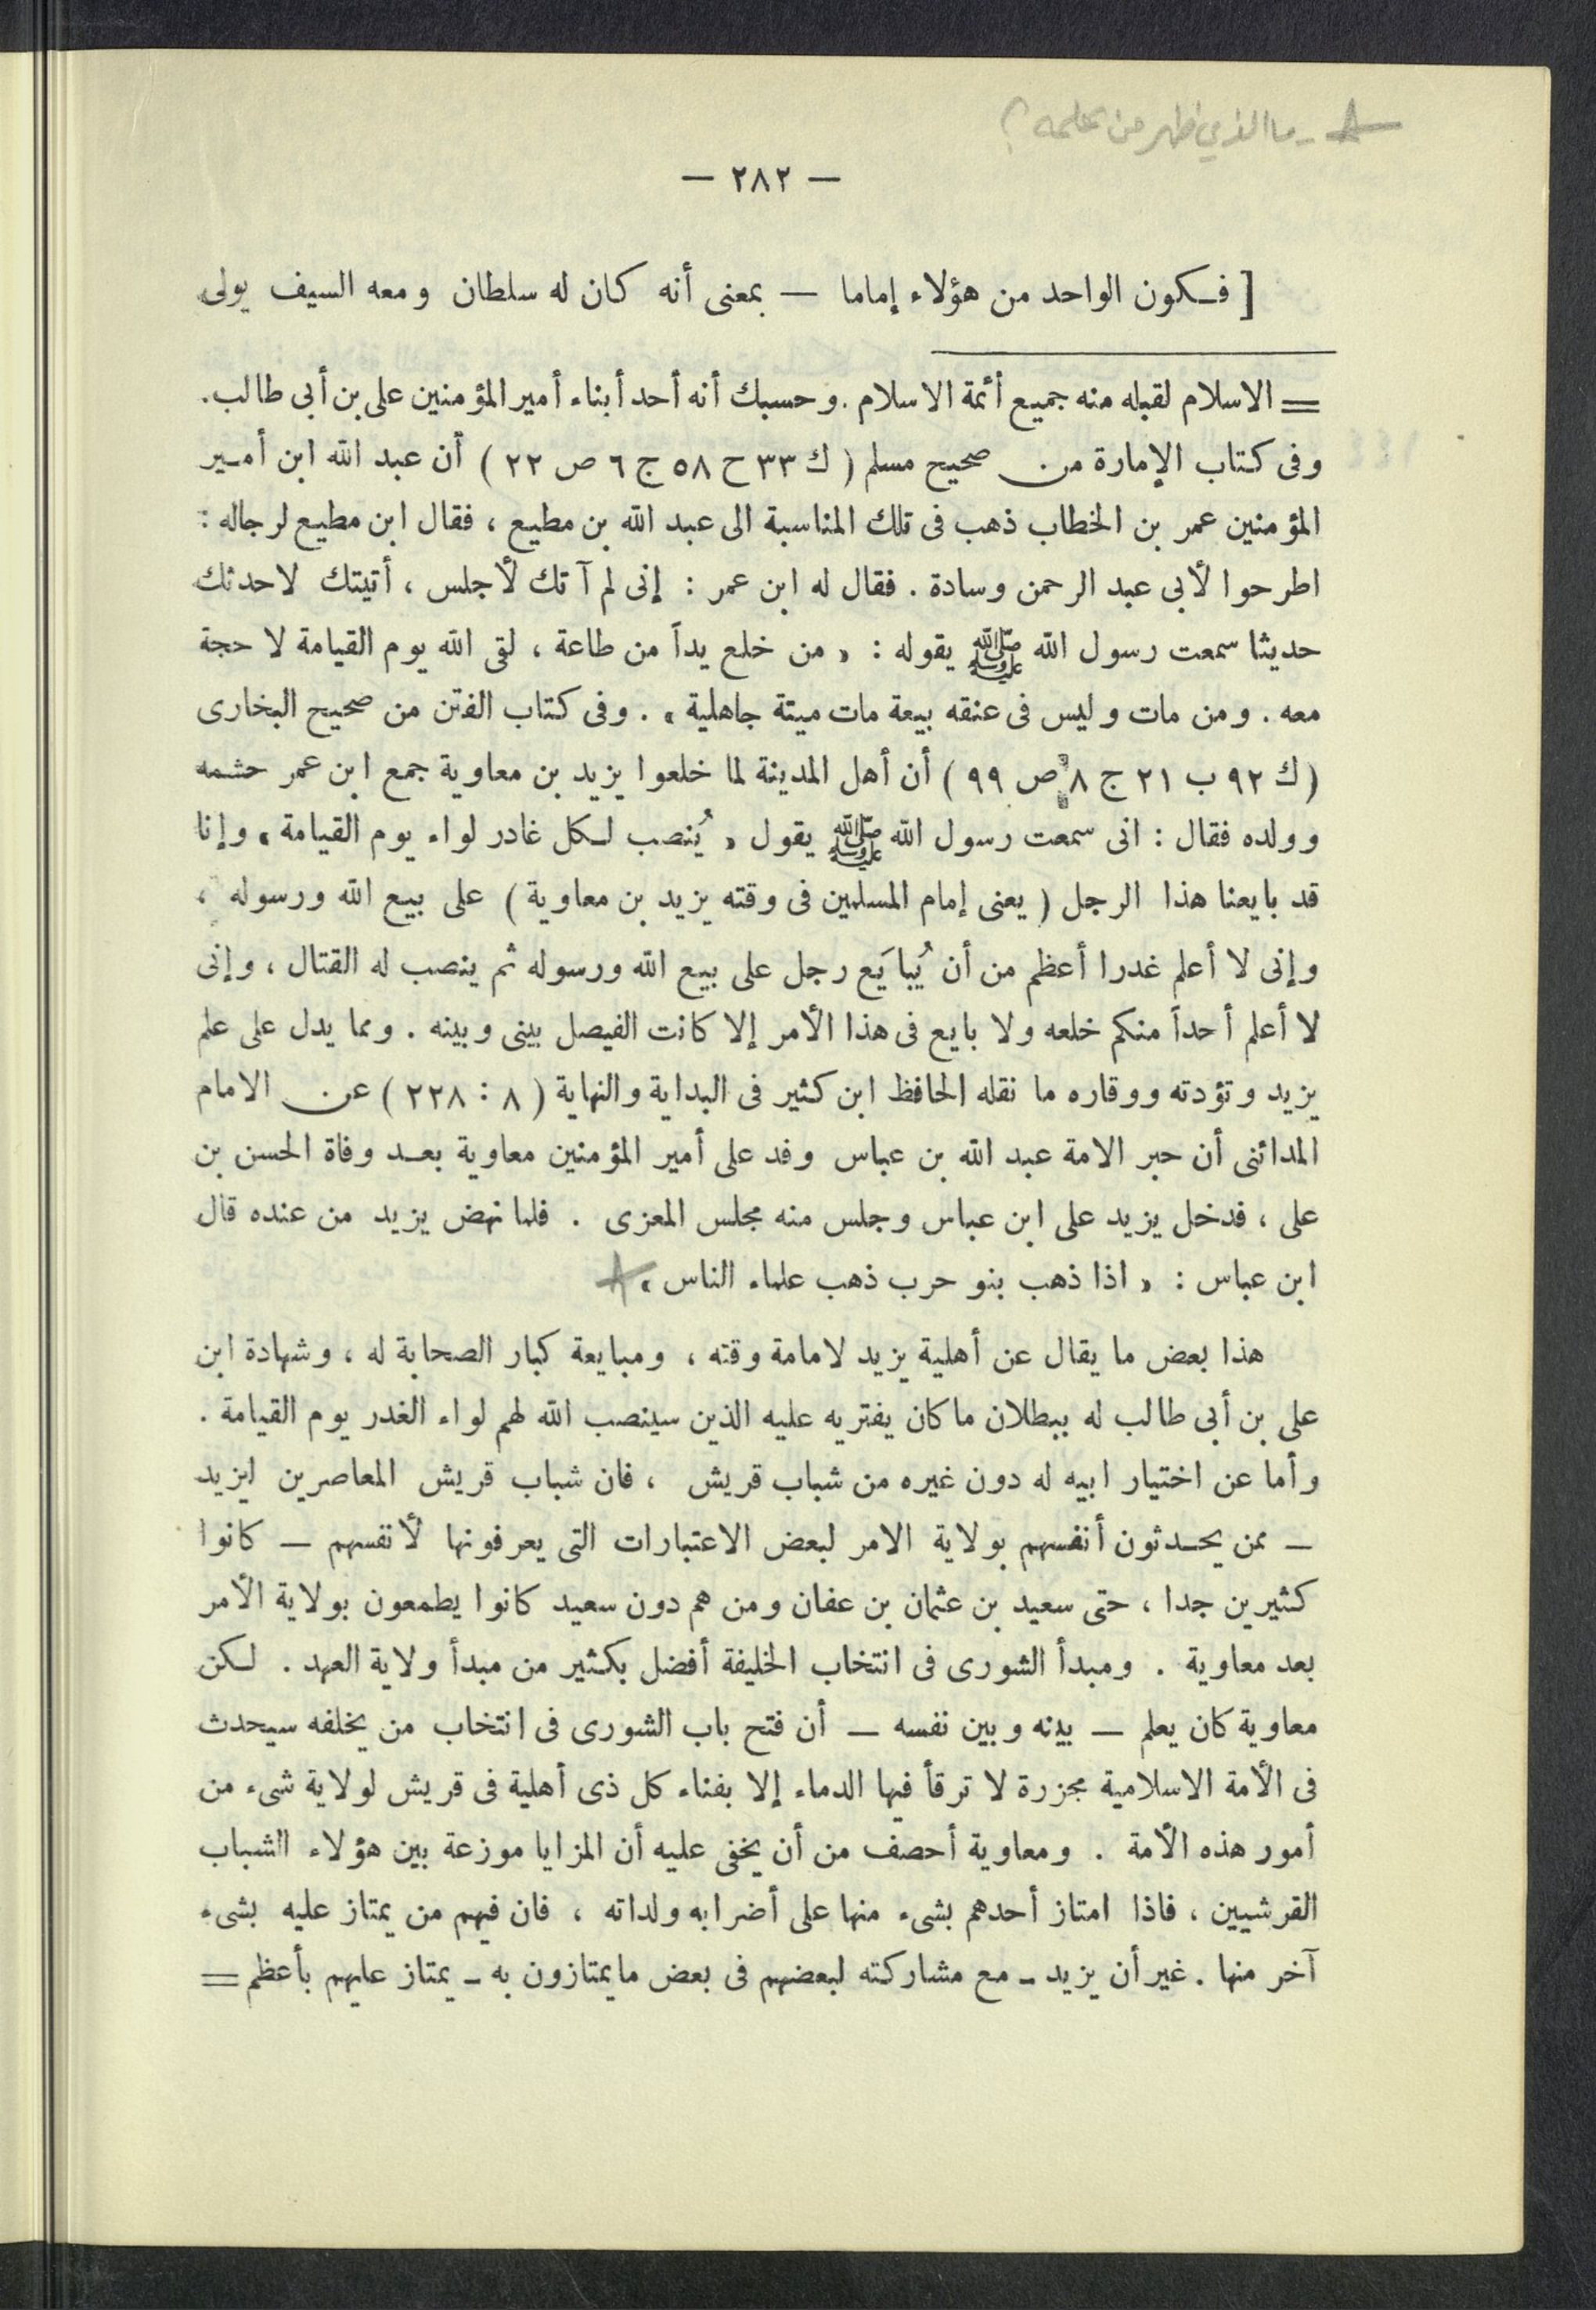 ما الذي ظهر من علمه؟
— ٢٨٢ —
[ فـكون الواحد من هؤلاء إماما — بمعنى أنه كان له سلطان ومعه السيف يولى
= الاسلام لقبله منه جميع أئمة الاسلام . وحسبك أنه أحد أبناء أمير المؤمنين على بن أبى طالب .
وفى كتاب الإمارة من صحيح مسلم ( ك ٣٣ ح ٥٨ ج ٦ ص ٢٢ ) أن عبد الله ابن أمـير
المؤمنين عمر بن الخطاب ذهب فى تلك المناسبة الى عبد الله بن مطيع ، فقال ابن مطيع لرجاله :
اطرحوا لأبى عبد الرحمن وسادة . فقال له ابن عمر : إنى لم آتك لأجلس ، أتيتك لاحدثك
حديثا سمعت رسول الله ﷺ يقوله : « من خلع يداً من طاعة ، لقى الله يوم القيامة لا حجة
معه . ومن مات وليس فى عنقه بيعة مات ميتة جاهلية » . وفى كتاب الفتن من صحيح البخارى
( ك ٩٢ ب ٢١ ج ٨ ص ٩٩ ) أن أهل المدينة لما خلعوا يزيد بن معاوية جمع ابن عمر حشمه
وولده فقال : انى سمعت رسول الله ﷺ يقول « يُنصب لـكل غادر لواء يوم القيامة » وإنا
قد بايعنا هذا الرجل ( يعنى إمام المسلمين فى وقته يزيد بن معاوية ) على بيع الله ورسوله ،
وإنى لا أعلم غدرا أعظم من أن يُبايَع رجل على بيع الله ورسوله ثم ينصب له القتال ، وإنى
لا أعلم أحداً منكم خلعه ولا بايع فى هذا الأمر إلا كانت الفيصل بينى وبينه . ومما يدل على علم
يزيد وتؤدته ووقاره ما نقله الحافظ ابن كثير فى البداية والنهاية ( ٨ : ٢٢٨ ) عن الامام
المدائنى أن حبر الامة عبد الله بن عباس وفد على أمير المؤمنين معاوية بعـد وفاة الحسن بن
على ، فدخل يزيد على ابن عباس وجلس منه مجلس المعزى . فلما نهض يزيد من عنده قال
ابن عباس : « اذا ذهب بنو حرب ذهب علماء الناس »
هذا بعض ما يقال عن أهلية يزيد لامامة وقته ، ومبايعة كبار الصحابة له ، وشهادة ابن
على بن أبى طالب له ببطلان ما كان يفتريه عليه الذين سينصب الله لهم لواء الغدر يوم القيامة .
وأما عن اختيار ابيه له دون غيره من شباب قريش ، فان شباب قريش المعاصرين ليزيد
— ممن يحـدثون أنفسهم بولاية الامر لبعض الاعتبارات التى يعرفونها لأنفسهم — كانوا
كثيرين جدا ، حتى سعيد بن عثمان بن عفان ومن هم دون سعيد كانوا يطمعون بولاية الأمر
بعد معاوية . ومبدأ الشورى فى انتخاب الخليفة أفضل بكثير من مبدأ ولاية العهد . لـكن
معاوية كان يعلم — بينه وبين نفسه — أن فتح باب الشورى فى انتخاب من يخلفه سيحدث
فى الأمة الاسلامية مجزرة لا ترقأ فيها الدماء إلا بفناء كل ذى أهلية فى قريش لولاية شىء من
أمور هذه الأمة . ومعاوية أحصف من أن يخفى عليه أن المزايا موزعة بين هؤلاء الشباب
القرشيين ، فاذا امتاز أحدهم بشىء منها على أضرابه ولداته ، فان فيهم من يمتاز عليه بشىء
آخر منها . غير أن يزيد ــ مع مشاركته لبعضهم فى بعض ما يمتازون به ــ يمتاز عليهم بأعظم =